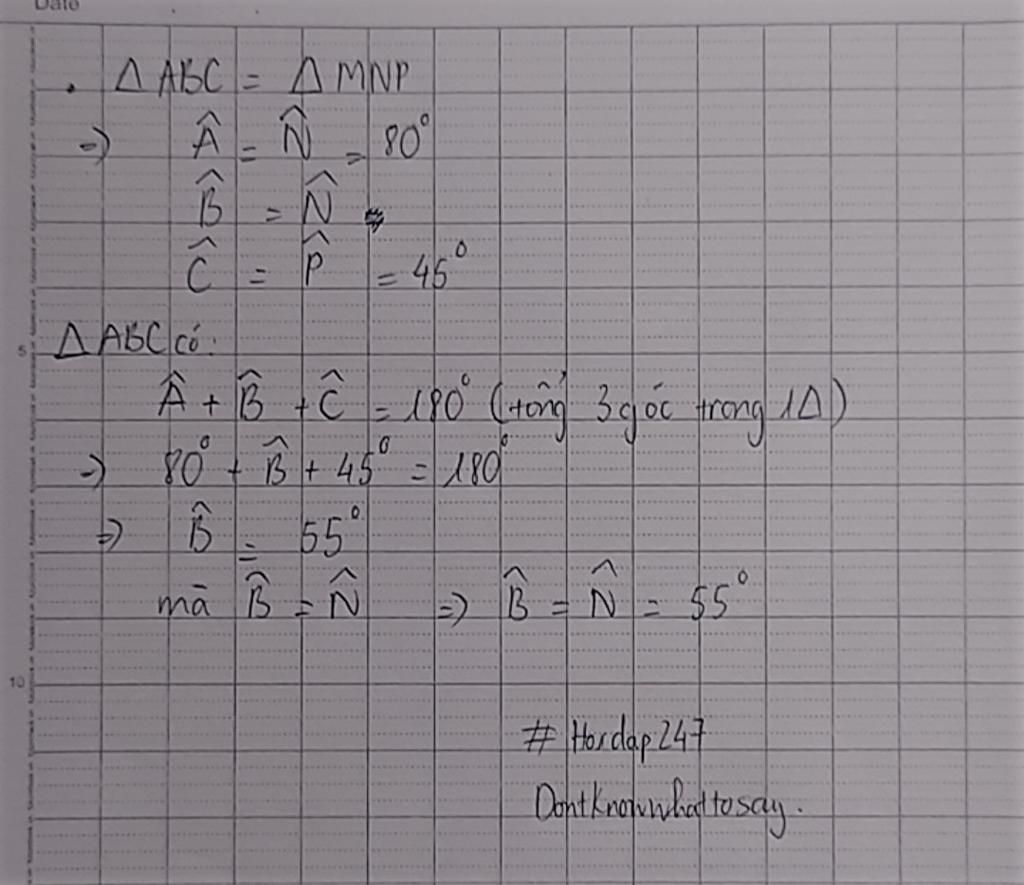 Date
. Δ ABC = Δ MNP
=) Â = N̂ = 80°
B̂ = N̂
Ĉ = P̂ = 45°
5
Δ ABC có:
Â + B̂ + Ĉ = 180° (tổng 3 góc trong 1Δ)
=) 80° + B̂ + 45° = 180°
=) B̂ = 55°
mà B̂ = N̂ =) B̂ = N̂ = 55°
10
# Hoidap247
Dontknowwhattosay.